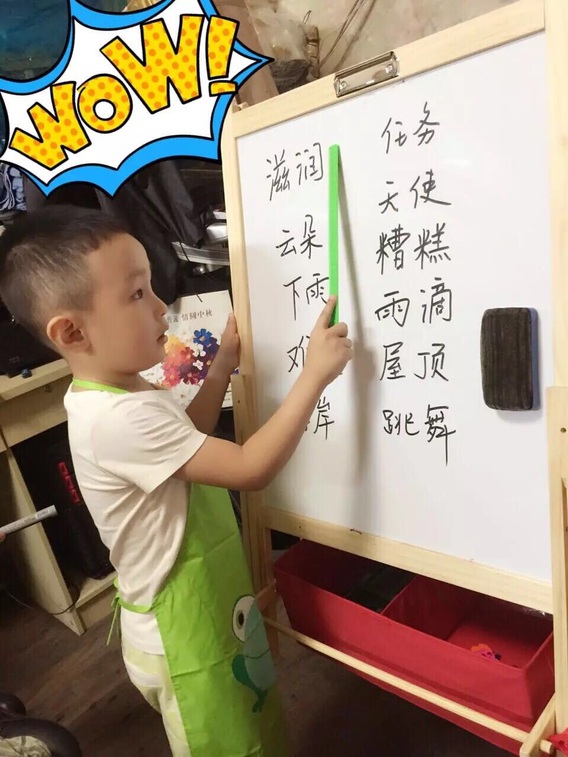 WOW!
滋润
云朵
下雨
岸
任务
天使
糟糕
雨滴
屋顶
跳舞
情圓中秋